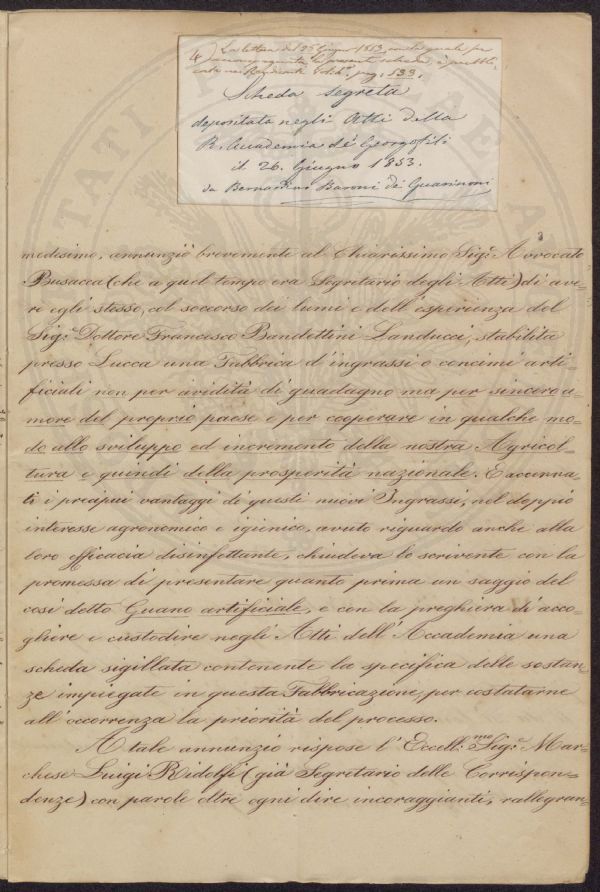 4) La lettera del 25 Giugno 1853, con la quale fu
accompagnata la presente scheda, è pubbli-
cata nei Rendiconti pag. 133.
Scheda segreta
depositata negli Atti della
R. Accademia dei Georgofili
il 26. Giugno 1853.
da Bernardino Baroni dei Guarinoni
3
medesimo, annunziò brevemente al Chiarissimo Sigr. Avvocato
Busacca (che a quel tempo era Segretario degli Atti) di ave=
re egli stesso, col soccorso dei lumi e dell'esperienza del
Sigr. Dottore Francesco Bandettini Landucci, stabilita
presso Lucca una Fabbrica d'ingrassi o concimi arti=
ficiali non per avidità di guadagno ma per sincero a=
more del proprio paese e per cooperare in qualche mo=
do allo sviluppo ed incremento della nostra Agricol=
tura e quindi della prosperità nazionale. E accenna=
ti i precipui vantaggi di questi nuovi Ingrassi, nel doppio
interesse agronomico e igienico, avuto riguardo anche alla
loro efficacia disinfettante, chiudeva lo scrivente con la
promessa di presentare quanto prima un saggio del
così detto Guano artificiale, e con la preghiera di acco=
gliere e custodire negli Atti dell'Accademia una
scheda sigillata contenente la specifica delle sostan=
ze impiegate in questa Fabbricazione, per costatarne
all'occorrenza la priorità del processo.
A tale annunzio rispose l'Eccell.mo Sigr. Mar=
chese Luigi Ridolfi (già Segretario delle Corrispon=
denze) con parole oltre ogni dire incoraggianti, rallegran=